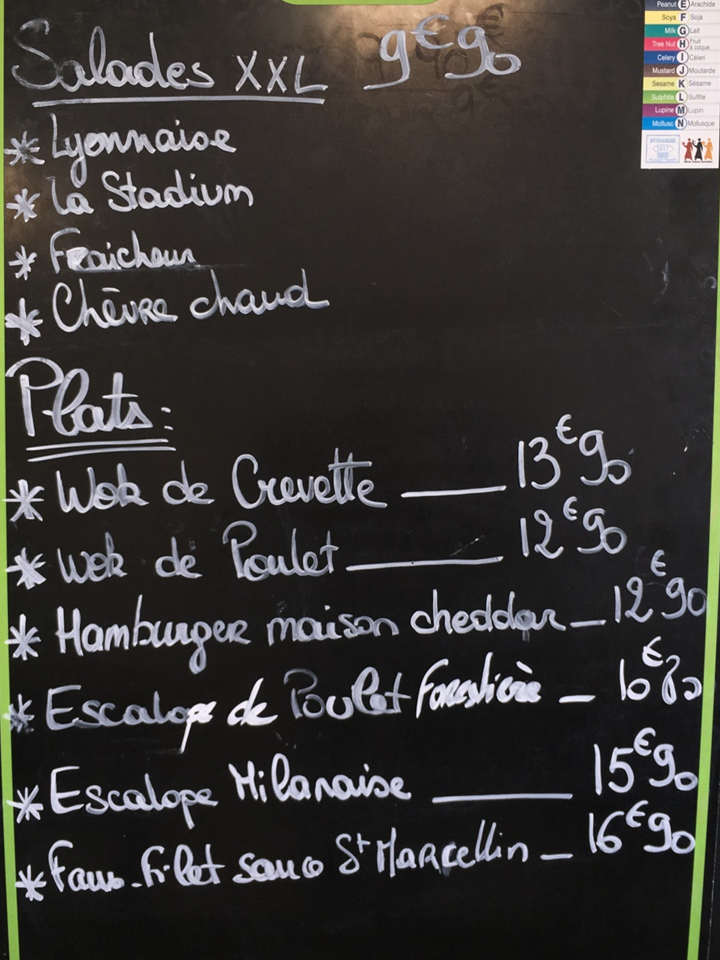 Peanut E Arachide
Soya F Soja
Milk G Lait
Tree Nut H Fruit à coque
Celery I Céleri
Mustard J Moutarde
Sesame K Sésame
Sulphite L Sulfite
Lupine M Lupin
Mollusc N Mollusque
Salades XXL 9€90
* Lyonnaise
* La Stadium
* Fraicheur
* Chèvre chaud
Plats:
* Wok de Crevette ——— 13€90
* Wok de Poulet ——— 12€90
* Hamburger maison cheddar — 12€90
* Escalope de Poulet Forestière — 10€80
* Escalope Milanaise ——— 15€90
* Faux-filet sauce St Marcellin — 16€90